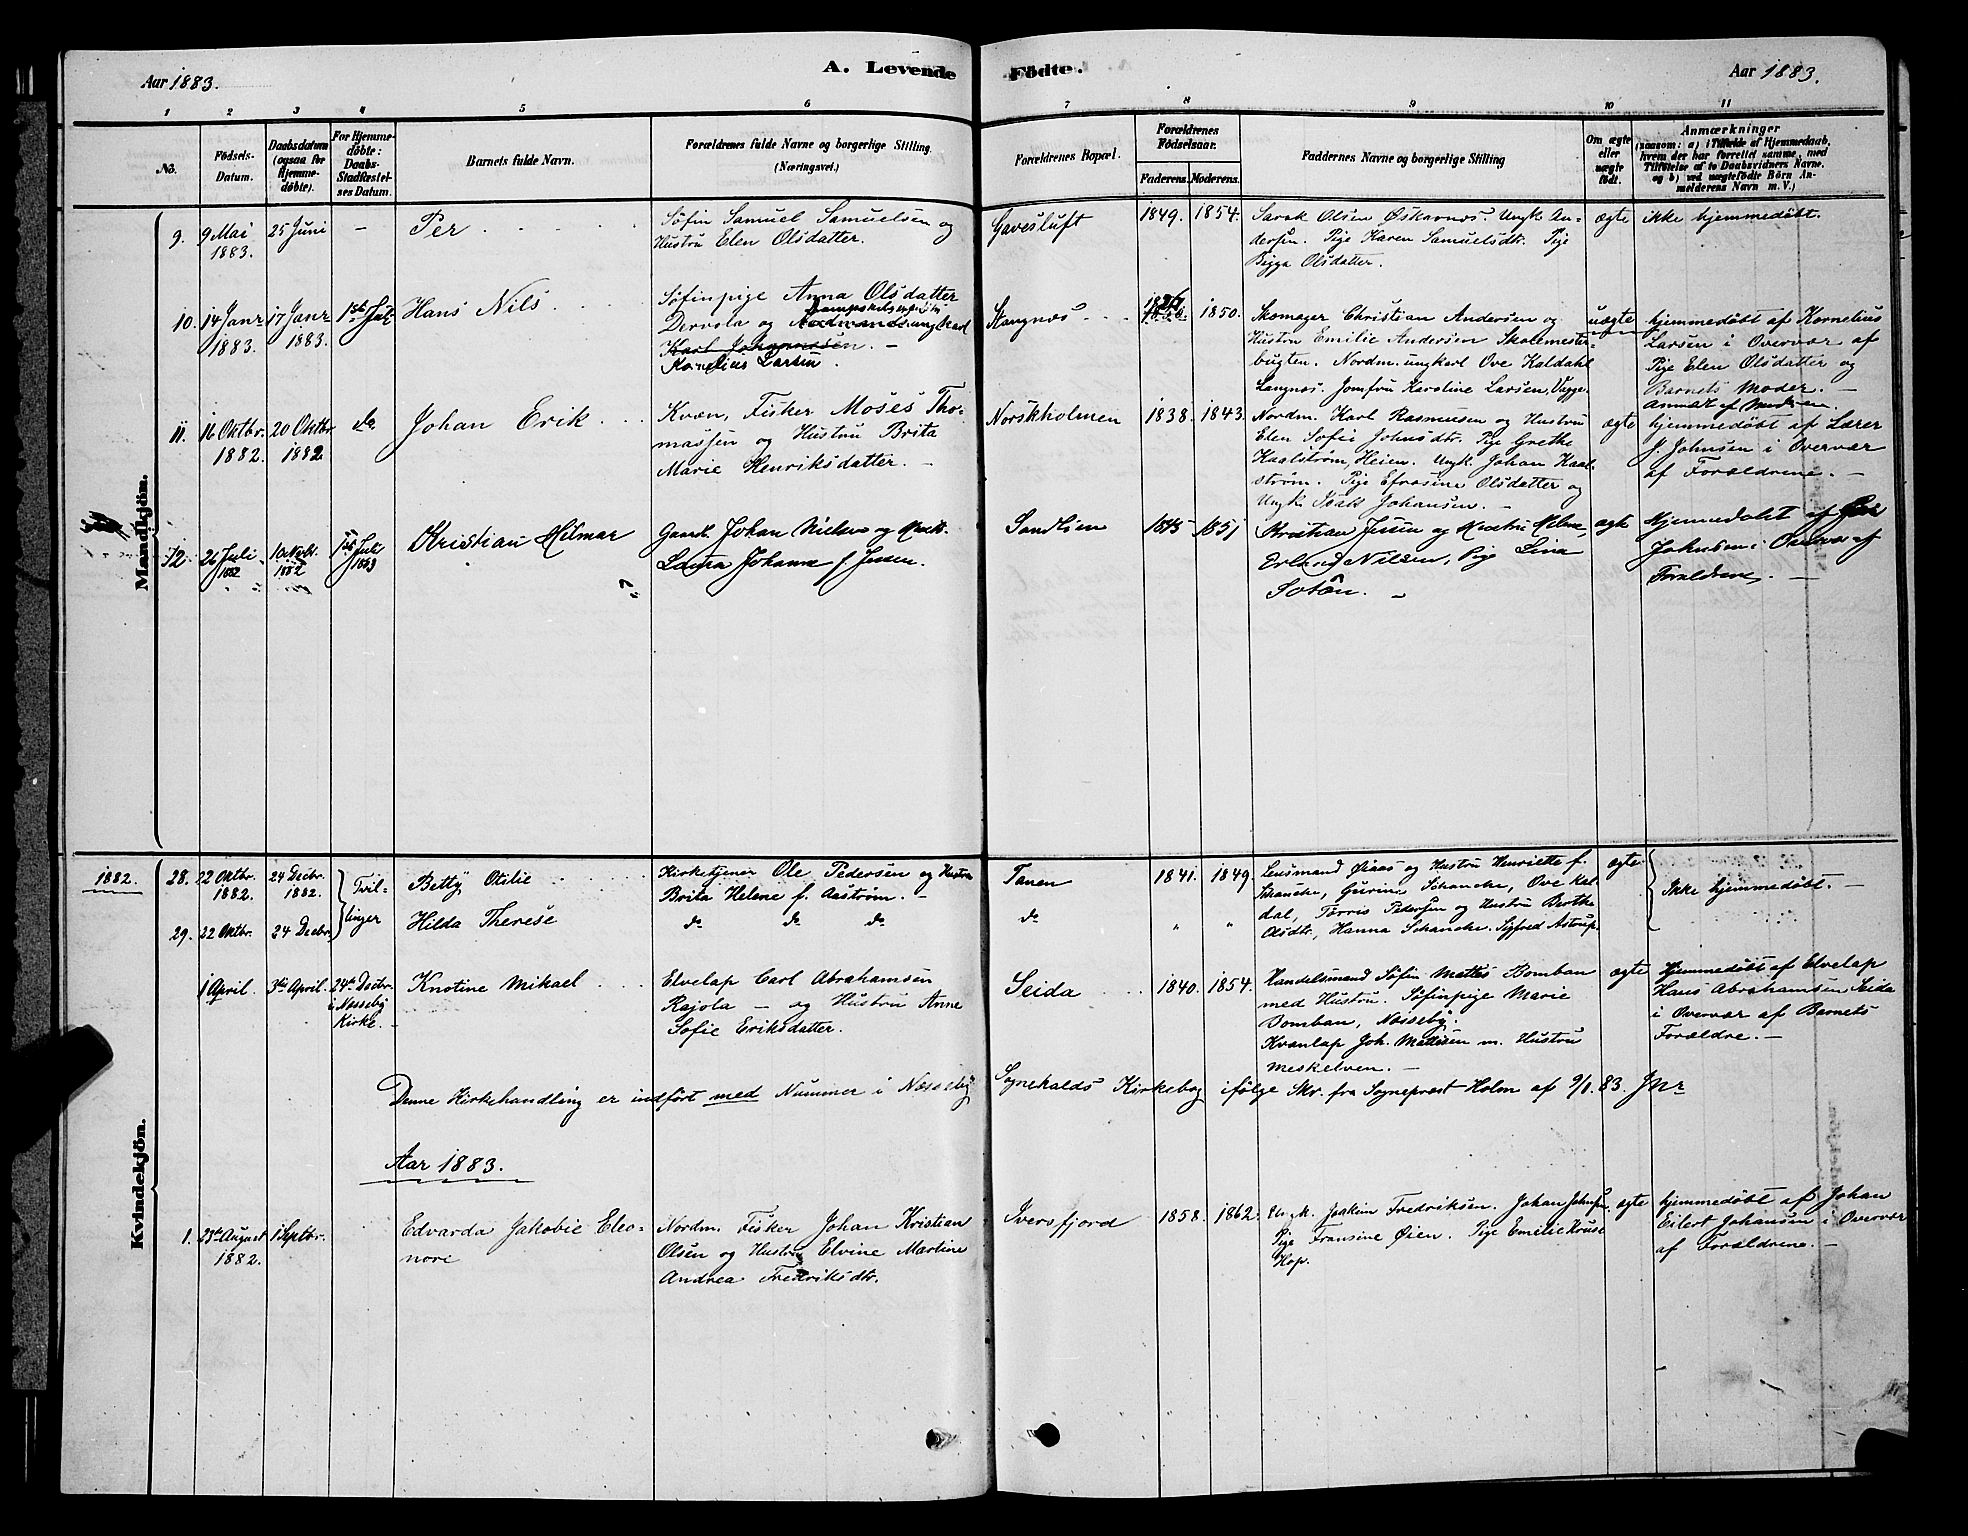 Aar 1883.
A. Levende Födte.
Aar 1883.
1 2 3 4 5 6 7 8 9 10 11
No.
Födsels-Datum.
Daabsdatum (ogsaa for Hjemmedöbte).
For Hjemmedöbte: Daabs-Stadfæstelses Datum.
Barnets fulde Navn.
Forældrenes fulde Navne og borgerlige Stilling. (Næringsvei.)
Forældrenes Bopæl.
Forældrenes Födselsaar.
Faderens. Moderens.
Faddernes Navne og borgerlige Stilling
Om ægte eller uægte födt.
Anmærkninger
(saasom: a) i Tilfælde af Hjemmedaab, hvem der har forrettet samme, med Tilföielse af to Daabsvidners Navne, og b) ved uægtefödte Börn Anmelderens Navn m. V.)
Mandkjön.
9. 9 Mai 1883. 25 Juni – Per
Søfin Samuel Samuelsen og
Hustru Elen Olsdatter.
Gavesluft 1849. 1854.
Sarak Olsen Oskarnæs. Ungk. An-
dersen. Pige Karen Samuelsdtr. Pige
Bigga Olsdatter.
ægte ikke hjemmedøbt.
10. 14 Janr 1883. 17 Janr 1883. 1ste Juli Hans Nils
Søfinpige Anna Olsdatter
Dervola og Nordmandsungkarl
Karl Johannesen. –
Kornelius Larsen.
Stangnæs 1850.
Skomager Christian Andersen og
Hustru Emilie Andersen Skolemester-
bugten. Nordm. ungkarl Ove Kaldahl
Langnæs. Jomfru Karoline Larsen, Vagge.
uægte
hjemmedøbt af Kornelius
Larsen i Overvær af
Pige Elen Olsdatter og
Barnets Moder. –
Anmeldt af Moderen.
11. 16 Oktbr. 1882. 20 Oktbr 1882 do Johan Erik
Kvæn, Fisker Moses Tho-
massen og Hustru Brita
Marie Henriksdatter. –
Norskholmen 1838. 1843.
Nordm. Karl Rasmusen og Hustru
Elen Sofie Johnsdtr. Pige Grethe
Kaalstrøm, Heien. Ungk. Johan Kaal-
strøm. Pige Efrosine Olsdatter og
Ungk Isak Johansen. –
ægte
hjemmedøbt af Lærer
J. Johnsen i Overvær
af Forældrene. –
12. 26 Juli 1882 10 Novb. 1882 1ste Juli 1883 Kristian Hilmar
Gaardb. Johan Nielsen og Hust.
Laura Johanne f Jensen.
Sandlien 1845 1851
Kristian Jensen og Hustru Helene,
Erland Nilsen, Pige Lina
ægte
Hjemmedøbt af
Johnsen i Overvær af
Forældrene. –
1882.
Kvindekjön.
28. 22 Oktbr. 1882. 24 Decbr. 1882. Tvil- Betty Otilie
Kirketjener Ole Pedersen og Hustru
Brita Helene f. Aaström. –
Tanen 1841. 1849
Lensmand Graas og Hustru Henriette f.
Schancke, Gurine Schancke, Ove Kal-
dal, Tørris Pedersen og Hustru Berthe
Olsdtr., Hanna Schancke. Sigfred Astrup.
ægte Ikke hjemmedøbt. –
29. 22 Oktbr. 24 Decbr. linger Hilda Therese
do do do
do " "
1 April. 3die April. 24de Decbr. i Nesseby Kirke. – Knotine Mikael
Elvelap Carl Abrahamsen
Rajola – og Hustru Anne
Sofie Eriksdatter.
Seida 1840. 1854.
Handelsmand Søfin Mattes Bomban
med Hustru. Søfinpige Marie
Bomban, Nesseby.
Kvænlap Joh. Mattisen m. Hustru
Meskelven. –
ægte
Hjemmedøbt af Elvelap
Hans Abrahamsen Seida
i Overvær af Barnets
Forældre. –
Denne Kirkehandling er indført med Nummer i Nesseby Sognekalds Kirkebog ifølge Skr. fra Sogneprest Holm af 9/1. 83.
Aar 1883.
1. 23de August 1882. 1 Septbr. Edvarda Jakobie Eleo-
nore
Nordm. Fisker Johan Kristian
Olsen og Hustru Elvine Martine
Andrea Fredriksdtr.
Iversfjord 1858. 1862.
Joakim Fredriksen. Johan Johnsen
Pige Fransine Øien. Pige Emilie Kruse
Hop.
ægte
hjemmedøbt af Johan
Eilert Johansen i Overvær
af Forældrene. –